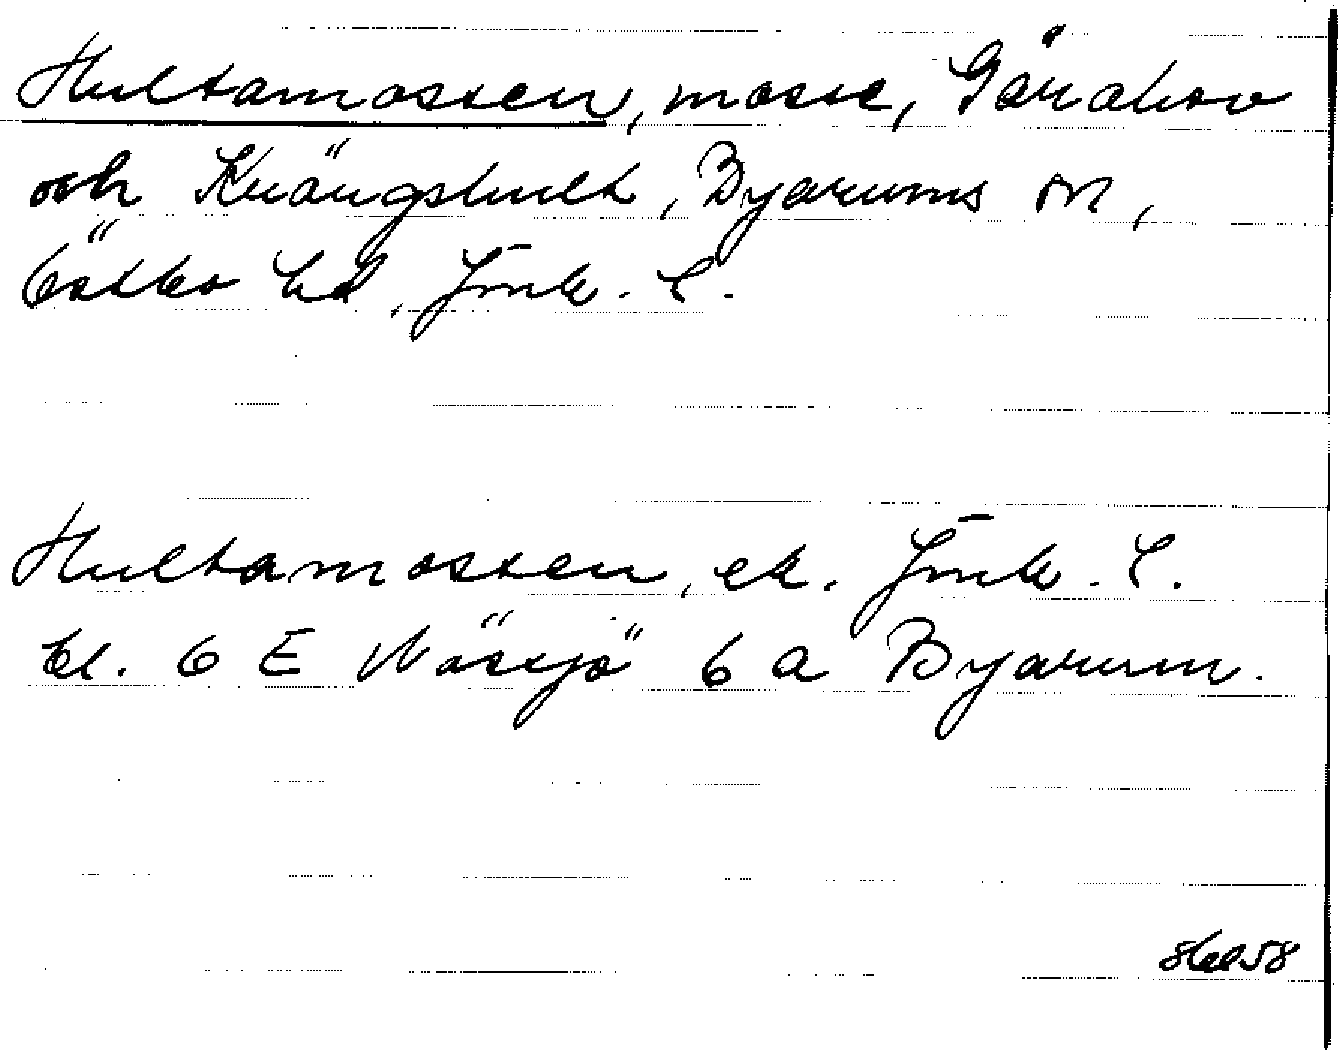 Hultamossen, mosse, Gärahov
och Krängshult, Byarums sn,
Östbo hd, Jönk. l.
Hultamossen, ek. Jönk. l.
bl. 6 E Nässjö 6 a Byarum.